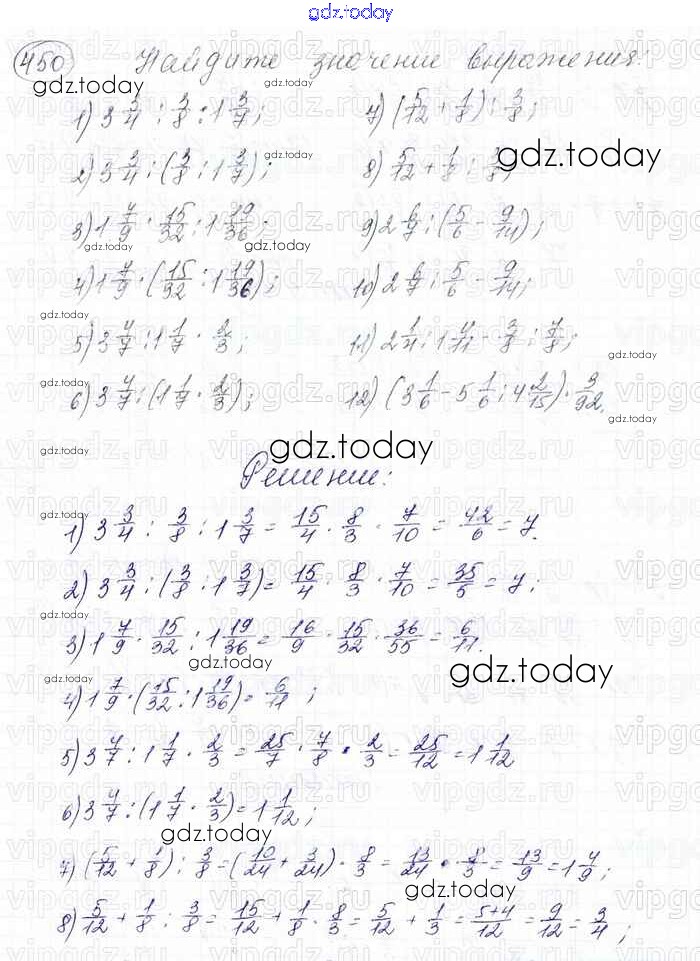 gdz.today
450 Найдите значение выражения:
gdz.today
1) 3 3/4 : 3/8 : 1 3/7; 7) (5/12 + 1/8) : 3/8;
2) 3 3/4 : (3/8 : 1 3/7); 8) 5/12 + 1/8 : 3/8;
gdz.today
gdz.today
3) 1 7/9 · 15/32 : 1 19/36; 9) 2 6/7 : (5/6 - 9/14);
gdz.today
gdz.today
4) 1 7/9 · (15/32 : 1 19/36); 10) 2 6/7 : 5/6 - 9/14;
gdz.today
5) 3 4/7 : 1 1/7 · 2/3; 11) 2 1/4 : 1 4/11 - 3/8 : 7/8;
gdz.today
6) 3 4/7 : (1 1/7 · 2/3); 12) (3 1/6 - 5 1/6 : 4 2/15) · 3/92.
gdz.today
gdz.today
gdz.today
Решение:
1) 3 3/4 : 3/8 : 1 3/7 = 15/4 · 8/3 · 7/10 = 42/6 = 7.
gdz.today
2) 3 3/4 : (3/8 : 1 3/7) = 15/4 · 8/3 · 7/10 = 35/5 = 7;
gdz.today
3) 1 7/9 · 15/32 : 1 19/36 = 16/9 · 15/32 · 36/55 = 6/11.
gdz.today
gdz.today
4) 1 7/9 · (15/32 : 1 19/36) = 6/11;
gdz.today
5) 3 4/7 : 1 1/7 · 2/3 = 25/7 · 7/8 · 2/3 = 25/12 = 1 1/12
6) 3 4/7 : (1 1/7 · 2/3) = 1 1/12;
gdz.today
7) (5/12 + 1/8) : 3/8 = (10/24 + 3/24) · 8/3 = 13/24 · 8/3 = 13/9 = 1 4/9;
gdz.today
8) 5/12 + 1/8 : 3/8 = 15/12 + 1/8 · 8/3 = 5/12 + 1/3 = 5+4/12 = 9/12 = 3/4;